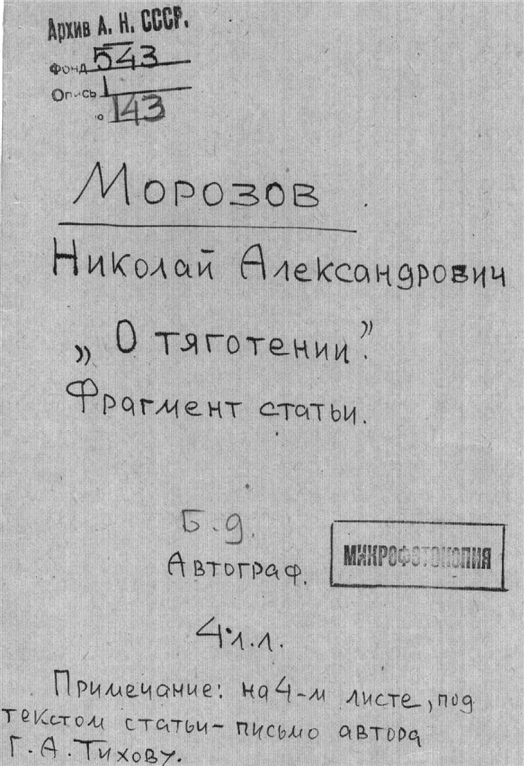 Архив А. Н. СССР.
Фонд 543
Опись 1
№ 143
Морозов
Николай Александрович
„О тяготении".
Фрагмент статьи.
Б.д.
Автограф.
МИКРОФОТОКОПИЯ
4 л.л.
Примечание: на 4-м листе, под
текстом статьи - письмо автора
Г. А. Тихову.